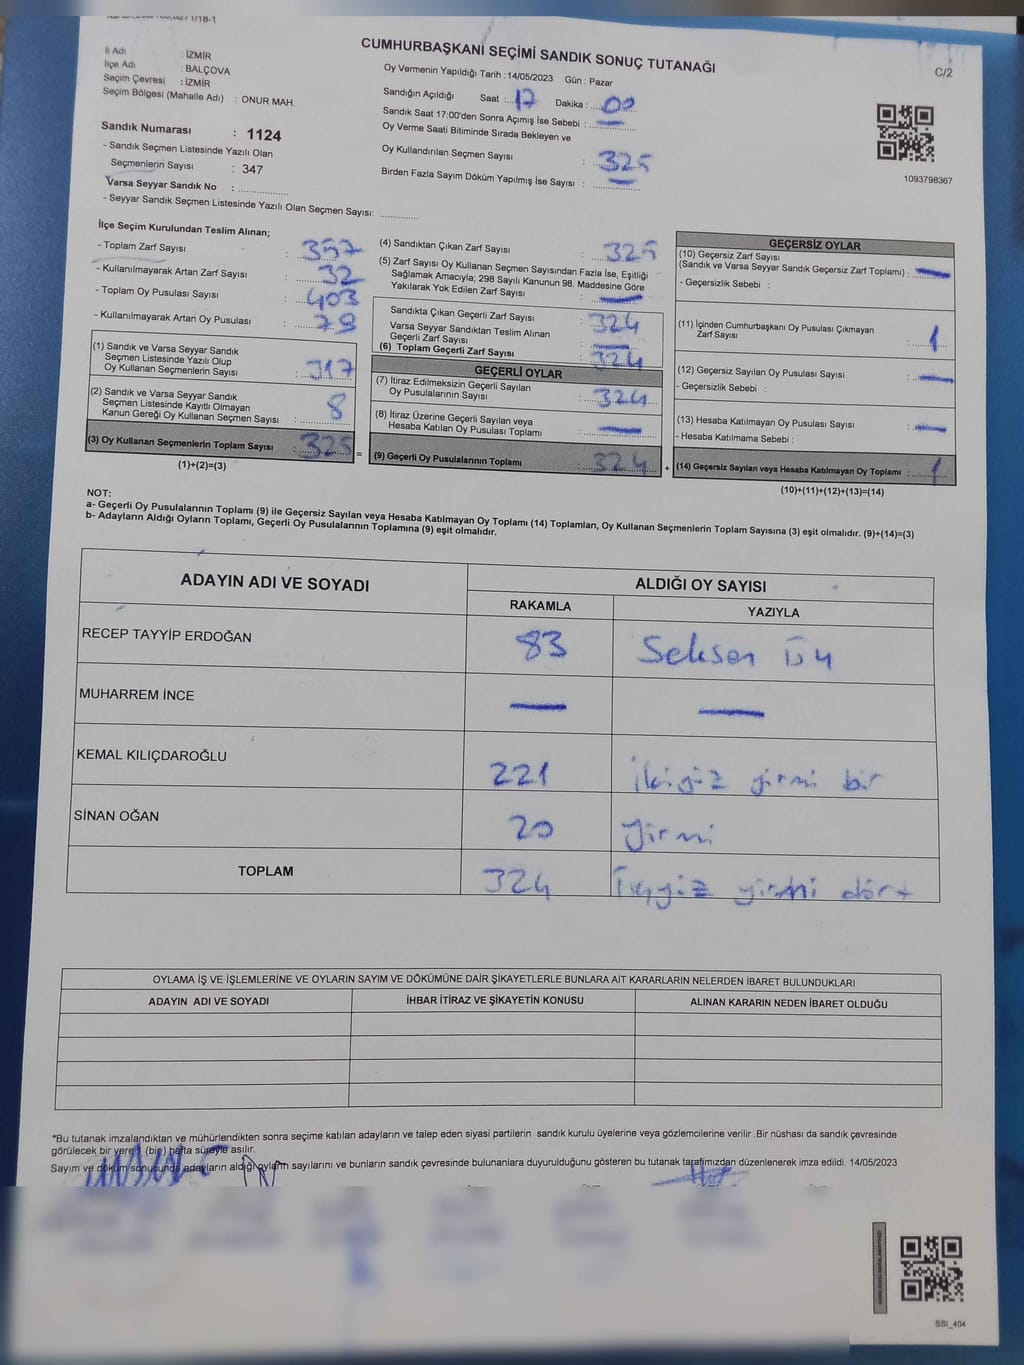 CUMHURBAŞKANI SEÇİMİ SANDIK SONUÇ TUTANAĞI
C/2
İl Adı : İZMİR
İlçe Adı : BALÇOVA
Seçim Çevresi : İZMİR
Seçim Bölgesi (Mahalle Adı) : ONUR MAH.
Sandık Numarası : 1124
- Sandık Seçmen Listesinde Yazılı Olan
Seçmenlerin Sayısı : 347
Varsa Seyyar Sandık No :
- Seyyar Sandık Seçmen Listesinde Yazılı Olan Seçmen Sayısı:
Oy Vermenin Yapıldığı Tarih : 14/05/2023 Gün : Pazar
Sandığın Açıldığı Saat : 17 Dakika : 00
Sandık Saat 17:00'den Sonra Açımış İse Sebebi : —
Oy Verme Saati Bitiminde Sırada Bekleyen ve
Oy Kullandırılan Seçmen Sayısı : 325
Birden Fazla Sayım Döküm Yapılmış İse Sayısı : —
1093798367
İlçe Seçim Kurulundan Teslim Alınan;
- Toplam Zarf Sayısı : 357
- Kullanılmayarak Artan Zarf Sayısı : 32
- Toplam Oy Pusulası Sayısı : 403
- Kullanılmayarak Artan Oy Pusulası :
(1) Sandık ve Varsa Seyyar Sandık
Seçmen Listesinde Yazılı Olup
Oy Kullanan Seçmenlerin Sayısı : 317
(2) Sandık ve Varsa Seyyar Sandık
Seçmen Listesinde Kayıtlı Olmayan
Kanun Gereği Oy Kullanan Seçmen Sayısı : 8
(3) Oy Kullanan Seçmenlerin Toplam Sayısı : 325 =
(1)+(2)=(3)
(4) Sandıktan Çıkan Zarf Sayısı : 325
(5) Zarf Sayısı Oy Kullanan Seçmen Sayısından Fazla İse, Eşitliği
Sağlamak Amacıyla; 298 Sayılı Kanunun 98. Maddesine Göre
Yakılarak Yok Edilen Zarf Sayısı : —
Sandıkta Çıkan Geçerli Zarf Sayısı : 324
Varsa Seyyar Sandıktan Teslim Alınan
Geçerli Zarf Sayısı : —
(6) Toplam Geçerli Zarf Sayısı : 324
GEÇERLİ OYLAR
(7) İtiraz Edilmeksizin Geçerli Sayılan
Oy Pusulalarının Sayısı : 324
(8) İtiraz Üzerine Geçerli Sayılan veya
Hesaba Katılan Oy Pusulası Toplamı : —
(9) Geçerli Oy Pusulalarının Toplamı : 324 +
GEÇERSİZ OYLAR
(10) Geçersiz Zarf Sayısı
(Sandık ve Varsa Seyyar Sandık Geçersiz Zarf Toplamı) : —
- Geçersizlik Sebebi :
(11) İçinden Cumhurbaşkanı Oy Pusulası Çıkmayan
Zarf Sayısı : 1
(12) Geçersiz Sayılan Oy Pusulası Sayısı : —
- Geçersizlik Sebebi :
(13) Hesaba Katılmayan Oy Pusulası Sayısı : —
- Hesaba Katılmama Sebebi :
(14) Geçersiz Sayılan veya Hesaba Katılmayan Oy Toplamı : 1
(10)+(11)+(12)+(13)=(14)
NOT:
a- Geçerli Oy Pusulalarının Toplamı (9) ile Geçersiz Sayılan veya Hesaba Katılmayan Oy Toplamı (14) Toplamları, Oy Kullanan Seçmenlerin Toplam Sayısına (3) eşit olmalıdır. (9)+(14)=(3)
b- Adayların Aldığı Oyların Toplamı, Geçerli Oy Pusulalarının Toplamına (9) eşit olmalıdır.
ADAYIN ADI VE SOYADI ALDIĞI OY SAYISI
RAKAMLA YAZIYLA
RECEP TAYYİP ERDOĞAN 83 Seksen üç
MUHARREM İNCE — —
KEMAL KILIÇDAROĞLU 221 ikiyüz yirmi bir
SİNAN OĞAN 20 yirmi
TOPLAM 324 üçyüz yirmi dört
OYLAMA İŞ VE İŞLEMLERİNE VE OYLARIN SAYIM VE DÖKÜMÜNE DAİR ŞİKAYETLERLE BUNLARA AİT KARARLARIN NELERDEN İBARET BULUNDUKLARI
ADAYIN ADI VE SOYADI İHBAR İTİRAZ VE ŞİKAYETİN KONUSU ALINAN KARARIN NEDEN İBARET OLDUĞU
*Bu tutanak imzalandıktan ve mühürlendikten sonra seçime katılan adayların ve talep eden siyasi partilerin sandık kurulu üyelerine veya gözlemcilerine verilir. Bir nüshası da sandık çevresinde
görülecek bir yere 1 (bir) hafta süreyle asılır.
Sayım ve döküm sonucunda adayların aldığı oyların sayılarını ve bunların sandık çevresinde bulunanlara duyurulduğunu gösteren bu tutanak tarafımızdan düzenlenerek imza edildi. 14/05/2023
SSI_404